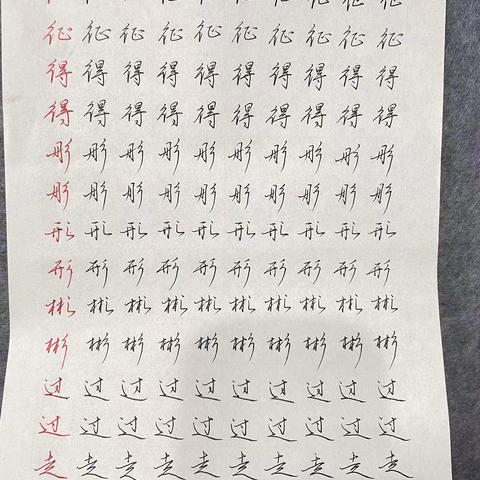 征征征征征征征征征征
得得得得得得得得得得
得得得得得得得得得得
彤彤彤彤彤彤彤彤彤彤
彤彤彤彤彤彤彤彤彤彤
形形形形形形形形形形
形形形形形形形形形形
彬彬彬彬彬彬彬彬彬彬
彬彬彬彬彬彬彬彬彬彬
过过过过过过过过过过
过过过过过过过过过过
走走走走走走走走走走